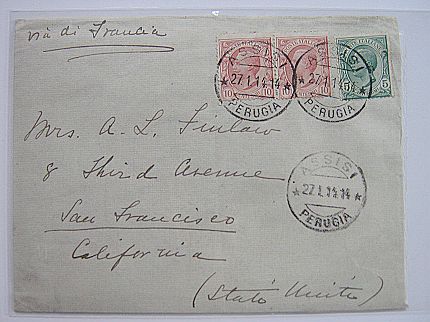 via di Francia
ASSISI
27.1.14.14
PERUGIA
ASSISI
27.1.14.14
PERUGIA
10
10
10
5
5
Mrs. A. L. Finlaw
8 Third Avenue
San Francisco
California
(Stati Uniti)
ASSISI
27.1.14.14
PERUGIA